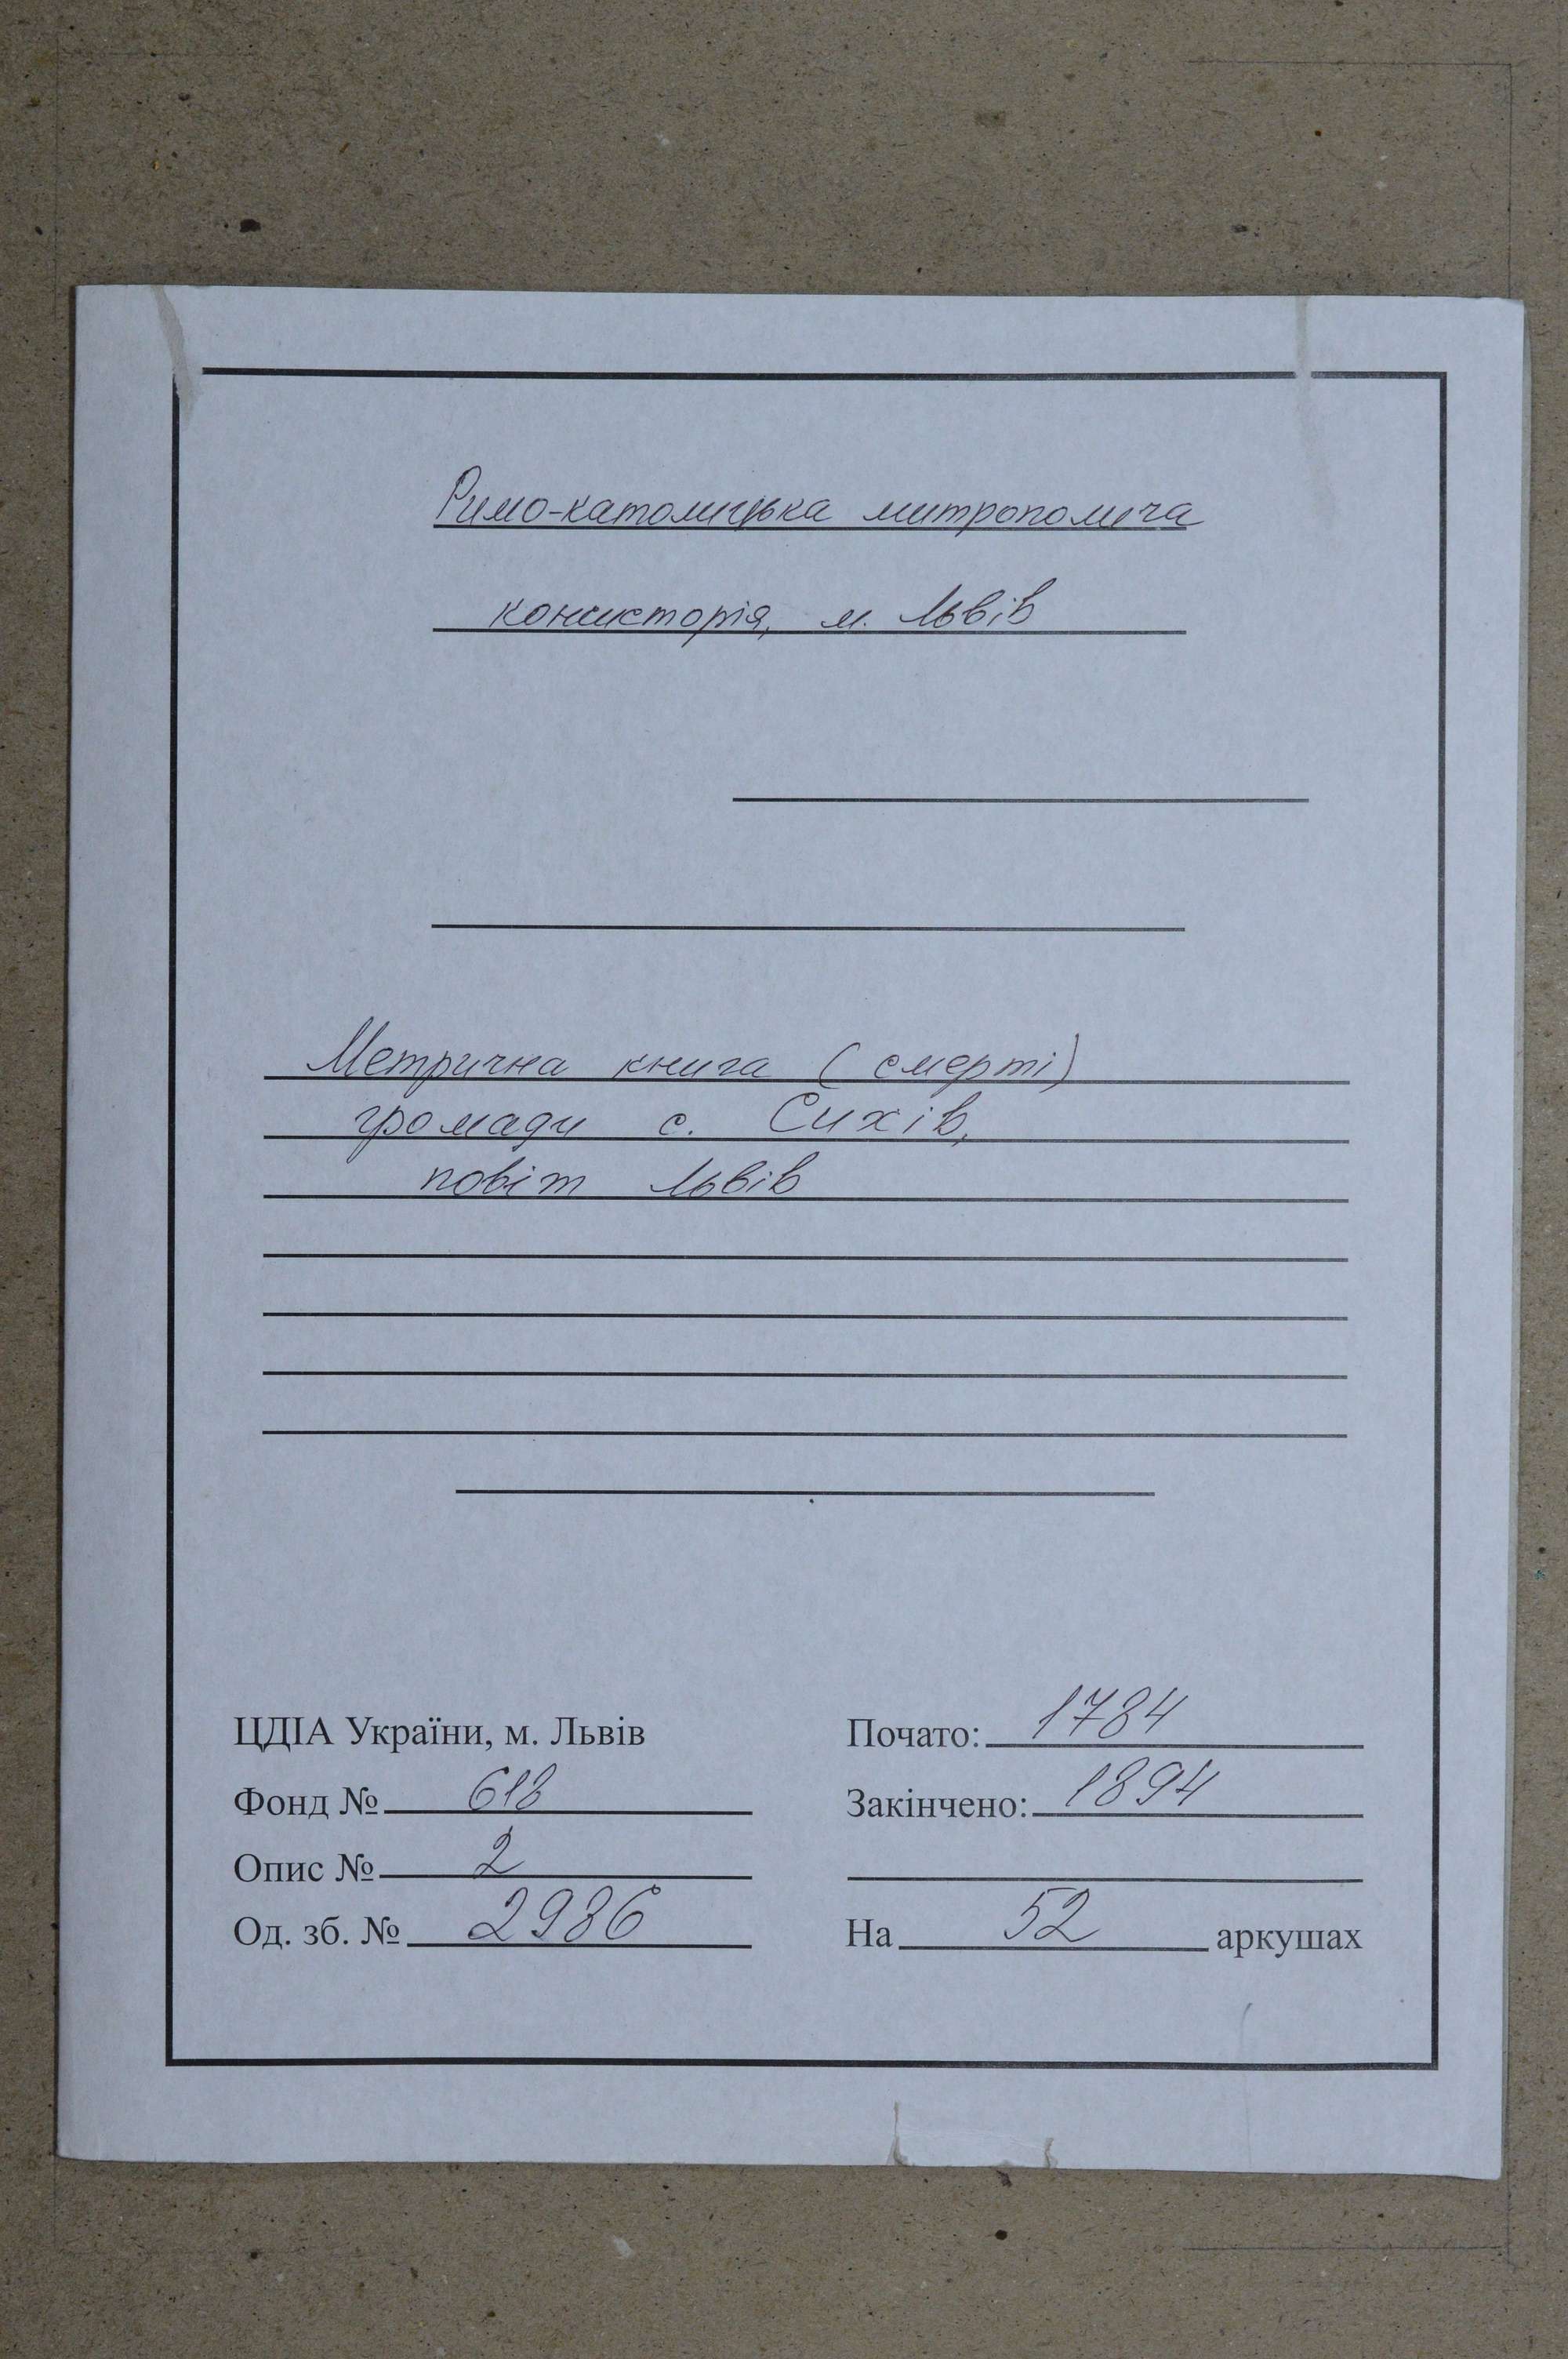 Римо-католицька митрополича
консисторія, м. Львів
Метрична книга (смерті)
громади с. Сихів,
повіт Львів
ЦДІА України, м. Львів
Фонд № 618
Опис № 2
Од. зб. № 2986
Почато: 1784
Закінчено: 1894
На 52 аркушах